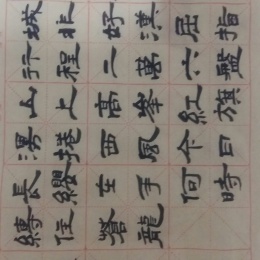 城非好漢屈指
行程二萬六盤
山上高峯紅旗
漫捲西風今日
長纓在手何時
縛住蒼龍